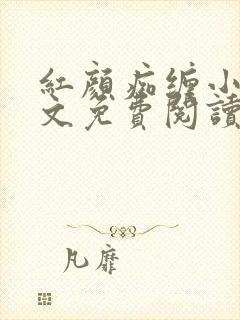 紅顏痴纏小
文免費閱讀
凡靡